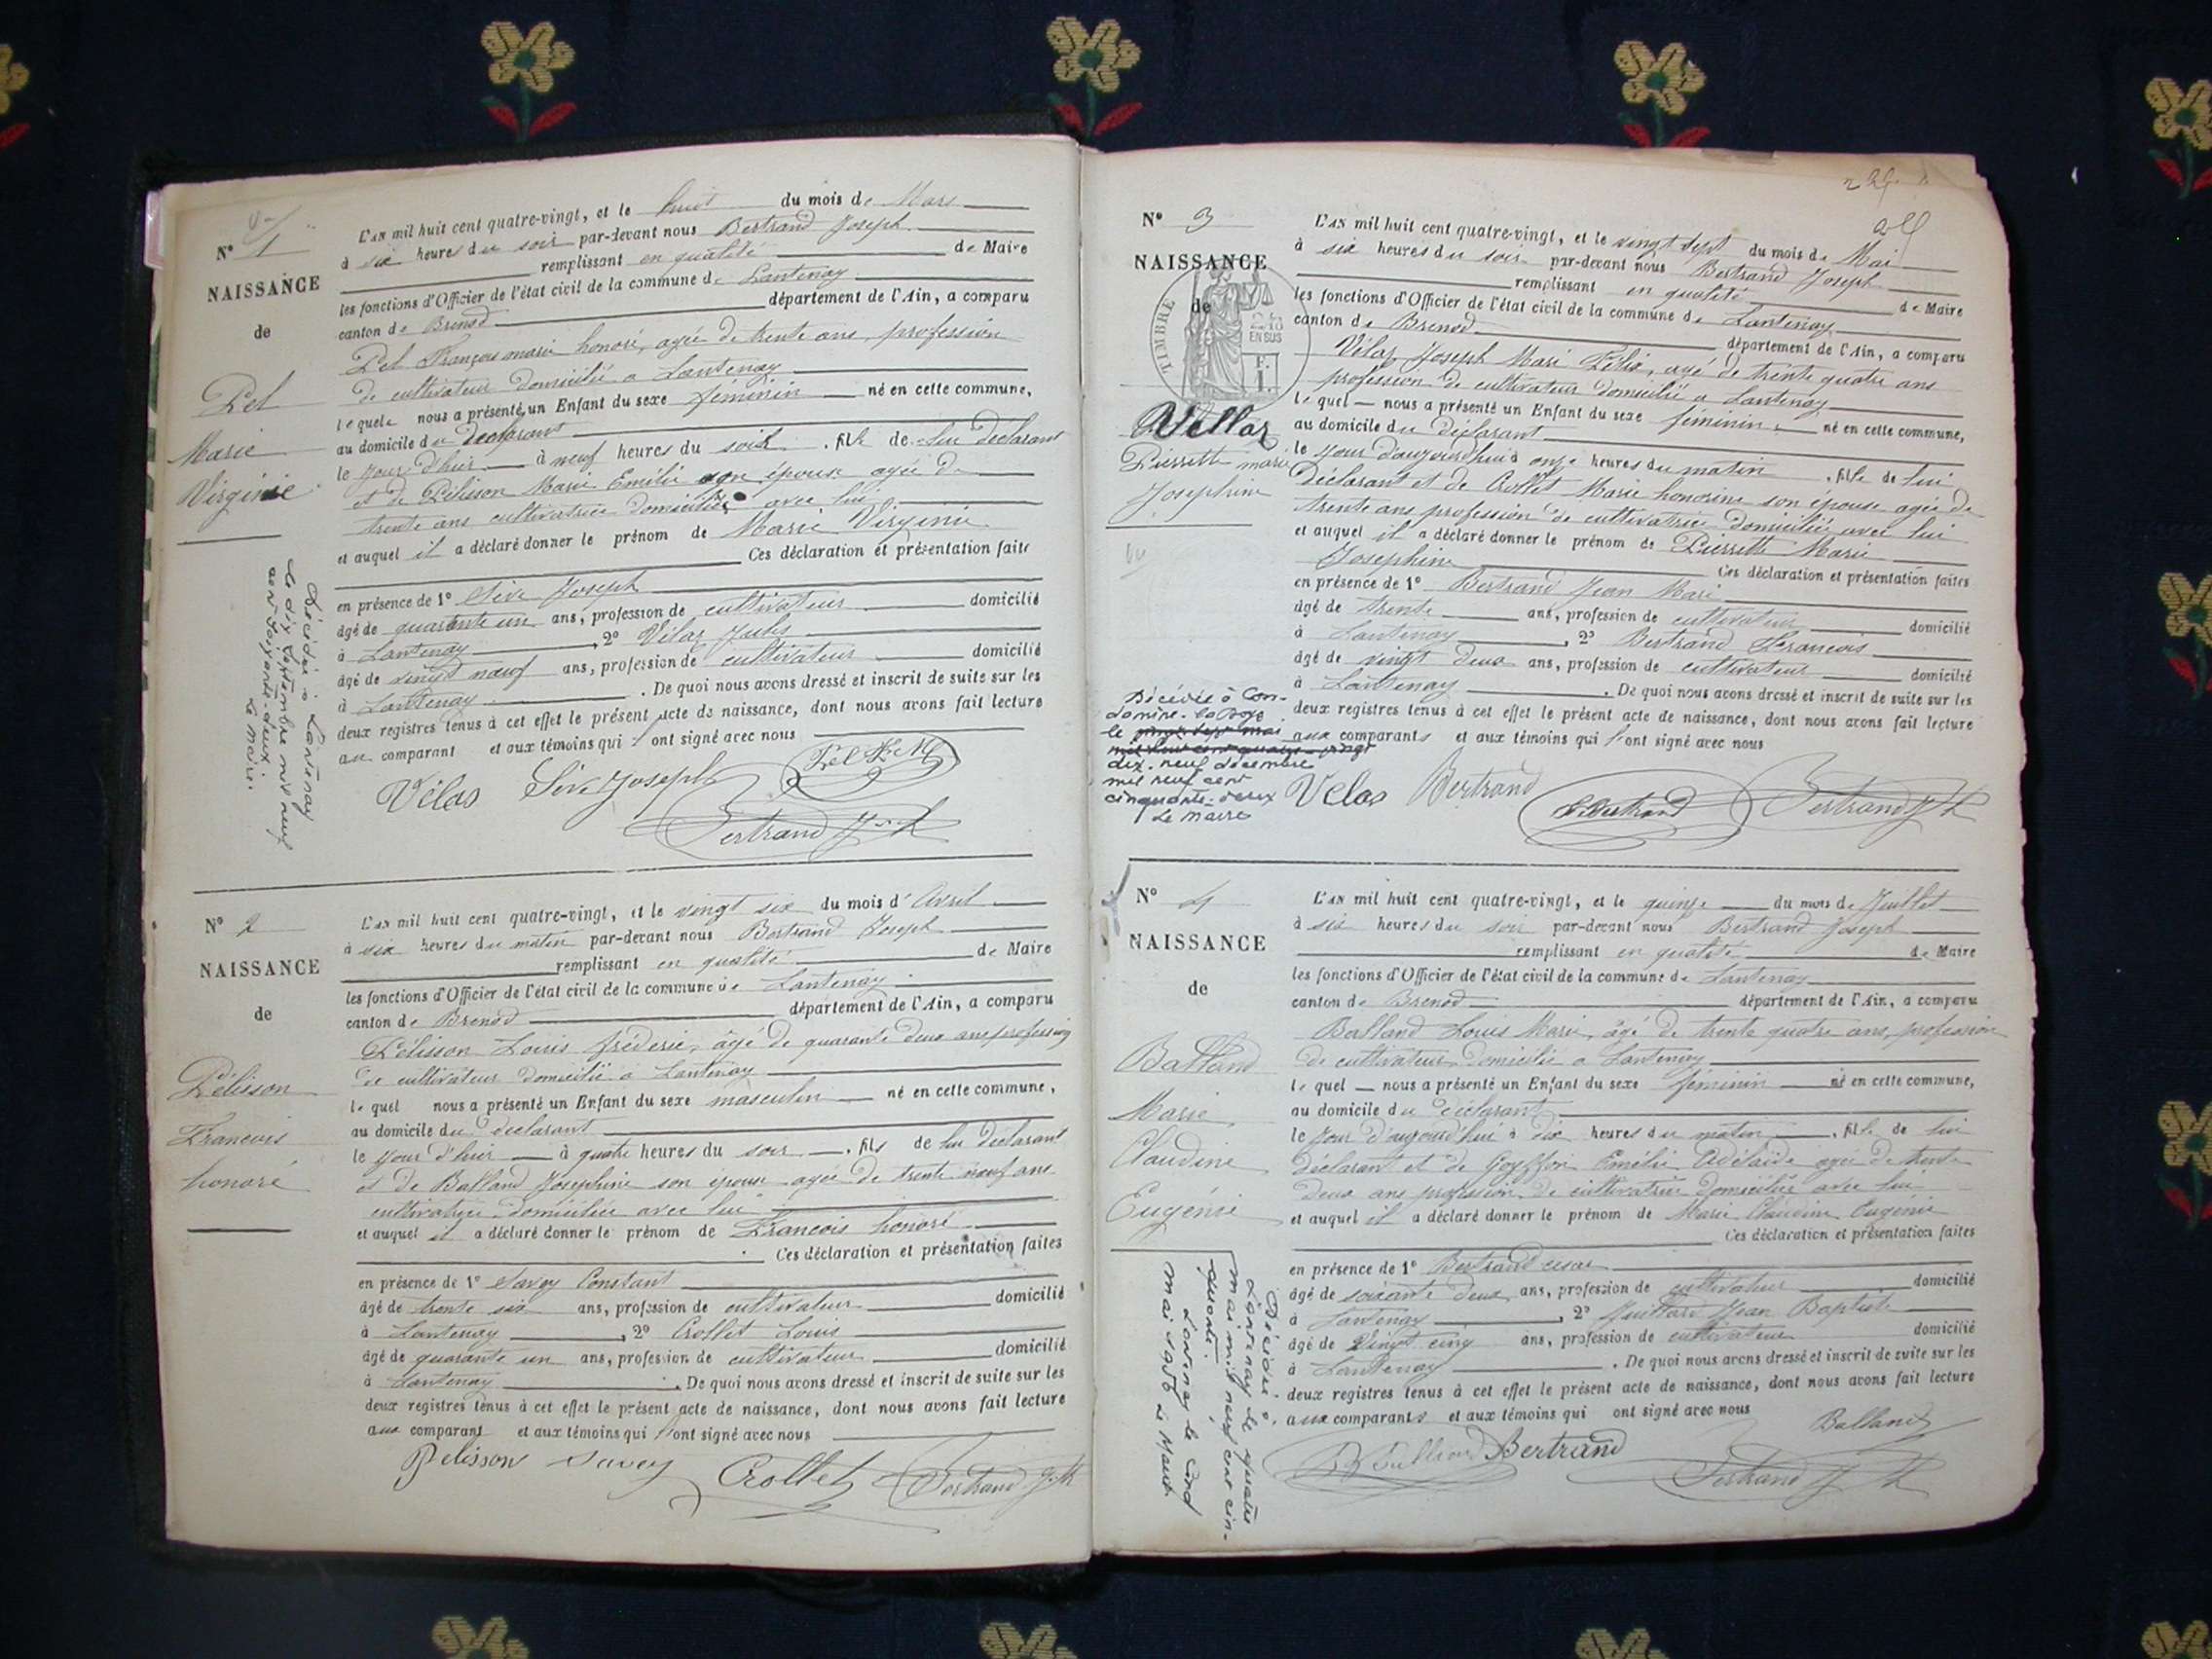 N° 1
NAISSANCE
de
Pel
Marie
Virginie
Décédée à Lantenay
le dix septembre mil neuf
cent soixante-deux.
Le Maire.
L'AN mil huit cent quatre-vingt, et le huit du mois de Mars
à six heures du soir par-devant nous Bertrand Joseph
remplissant en qualité de Maire
les fonctions d'Officier de l'état civil de la commune de Lantenay
canton de Brenod département de l'Ain, a comparu
Pel François marie honoré, agée de trente ans, profession
de cultivateur domicilié a Lantenay
lequel nous a présenté un Enfant du sexe féminin né en cette commune,
au domicile du declarant
le jour d'hier à neuf heures du soir . fille de lui declarant
et de Pélisson Marie Emélie son épouse agée de
trente ans cultivatrice domiciliée avec lui
et auquel il a déclaré donner le prénom de Marie Virginie
Ces déclaration et présentation faite
en présence de 1° Sève Joseph
âgé de quarante un ans, profession de cultivateur domicilié
à Lantenay , 2° Vélaz Jules
âgé de vingt neuf ans, profession de cultivateur domicilié
à Lantenay . De quoi nous avons dressé et inscrit de suite sur les
deux registres tenus à cet effet le présent acte de naissance, dont nous avons fait lecture
au comparant et aux témoins qui ont signé avec nous
Vélas Sève Joseph
Bertrand Jph
N° 2
NAISSANCE
de
Pélisson
Francois
honoré
L'AN mil huit cent quatre-vingt, et le vingt six du mois d'Avril
à six heures du matin par-devant nous Bertrand Joseph
remplissant en qualité de Maire
les fonctions d'Officier de l'état civil de la commune de Lantenay
canton de Brenod département de l'Ain, a comparu
Pélisson Louis fréderic, âgé de quarante deux ans profession
de cultivateur domicilié a Lantenay
lequel nous a présenté un Enfant du sexe masculin né en cette commune,
au domicile du declarant
le jour d'hier à quatre heures du soir . fils de lui declarant
et de Balland Josephine son épouse agée de trente neuf ans
cultivatrice domiciliée avec lui
et auquel il a déclaré donner le prénom de Francois honoré
Ces déclaration et présentation faites
en présence de 1° Savey Constant
âgé de trente six ans, profession de cultivateur domicilié
à Lantenay , 2° Crollet Louis
âgé de quarante un ans, profession de cultivateur domicilié
à Lantenay . De quoi nous avons dressé et inscrit de suite sur les
deux registres tenus à cet effet le présent acte de naissance, dont nous avons fait lecture
aux comparant et aux témoins qui l'ont signé avec nous
Pelisson Savey Crollet Bertrand Jph
N° 3
NAISSANCE
de
TIMBRE
2/10
EN SUS
F.
1.
Vellaz
Pierrette marie
Josephine
Décédée à Con-
damine-la-Doye
le vingt sept mai
mil huit cent quatre-vingt
dix-neuf décembre
mil neuf cent
cinquante-deux
Le Maire
L'AN mil huit cent quatre-vingt, et le vingt sept du mois de Mai
à six heures du soir par-devant nous Bertrand Joseph
remplissant en qualité de Maire
les fonctions d'Officier de l'état civil de la commune de Lantenay
canton de Brenod département de l'Ain, a comparu
Vélaz Joseph Marie Félix, agé de trente quatre ans
profession de cultivateur domicilié a Lantenay
lequel nous a présenté un Enfant du sexe féminin né en cette commune,
au domicile du déclarant
le jour d'aujourd'hui à onze heures du matin . fille de lui
déclarant et de Crollet Marie honorine son épouse agée de
trente ans profession de cultivatrice domiciliée avec lui
et auquel il a déclaré donner le prénom de Pierrette Marie
Josephine Ces déclaration et présentation faites
en présence de 1° Bertrand Jean Marie
âgé de trente ans, profession de cultivateur domicilié
à Lantenay , 2° Bertrand Francois
âgé de vingt deux ans, profession de cultivateur domicilié
à Lantenay . De quoi nous avons dressé et inscrit de suite sur les
deux registres tenus à cet effet le présent acte de naissance, dont nous avons fait lecture
aux comparants et aux témoins qui l'ont signé avec nous
Velas Bertrand Bertrand Bertrand Jph
N° 4
NAISSANCE
de
Balland
Marie
Claudine
Eugénie
Décédée à
Lantenay le quatre
mai mil neuf cent cin-
quante.
Lantenay le cinq
mai 1950 Le Maire
L'AN mil huit cent quatre-vingt, et le quinze du mois de Juillet
à six heures du soir par-devant nous Bertrand Joseph
remplissant en qualité de Maire
les fonctions d'Officier de l'état civil de la commune de Lantenay
canton de Brenod département de l'Ain, a comparu
Balland Louis Marie, âgé de trente quatre ans, profession
de cultivateur domicilié a Lantenay
lequel nous a présenté un Enfant du sexe féminin né en cette commune,
au domicile du déclarant
le jour d'aujourd'hui à dix heures du matin . fille de lui
déclarant et de Goyffon Emélie Adélaïde agée de trente
deux ans profession de cultivatrice domiciliée avec lui
et auquel il a déclaré donner le prénom de Marie Claudine Eugénie
Ces déclaration et présentation faites
en présence de 1° Bertrand cesar
âgé de soixante deux ans, profession de cultivateur domicilié
à Lantenay , 2° Juillard Jean Baptiste
âgé de vingt cinq ans, profession de cultivateur domicilié
à Lantenay . De quoi nous avons dressé et inscrit de suite sur les
deux registres tenus à cet effet le présent acte de naissance, dont nous avons fait lecture
aux comparants et aux témoins qui ont signé avec nous
Balland
Bertrand
Bertrand Jph